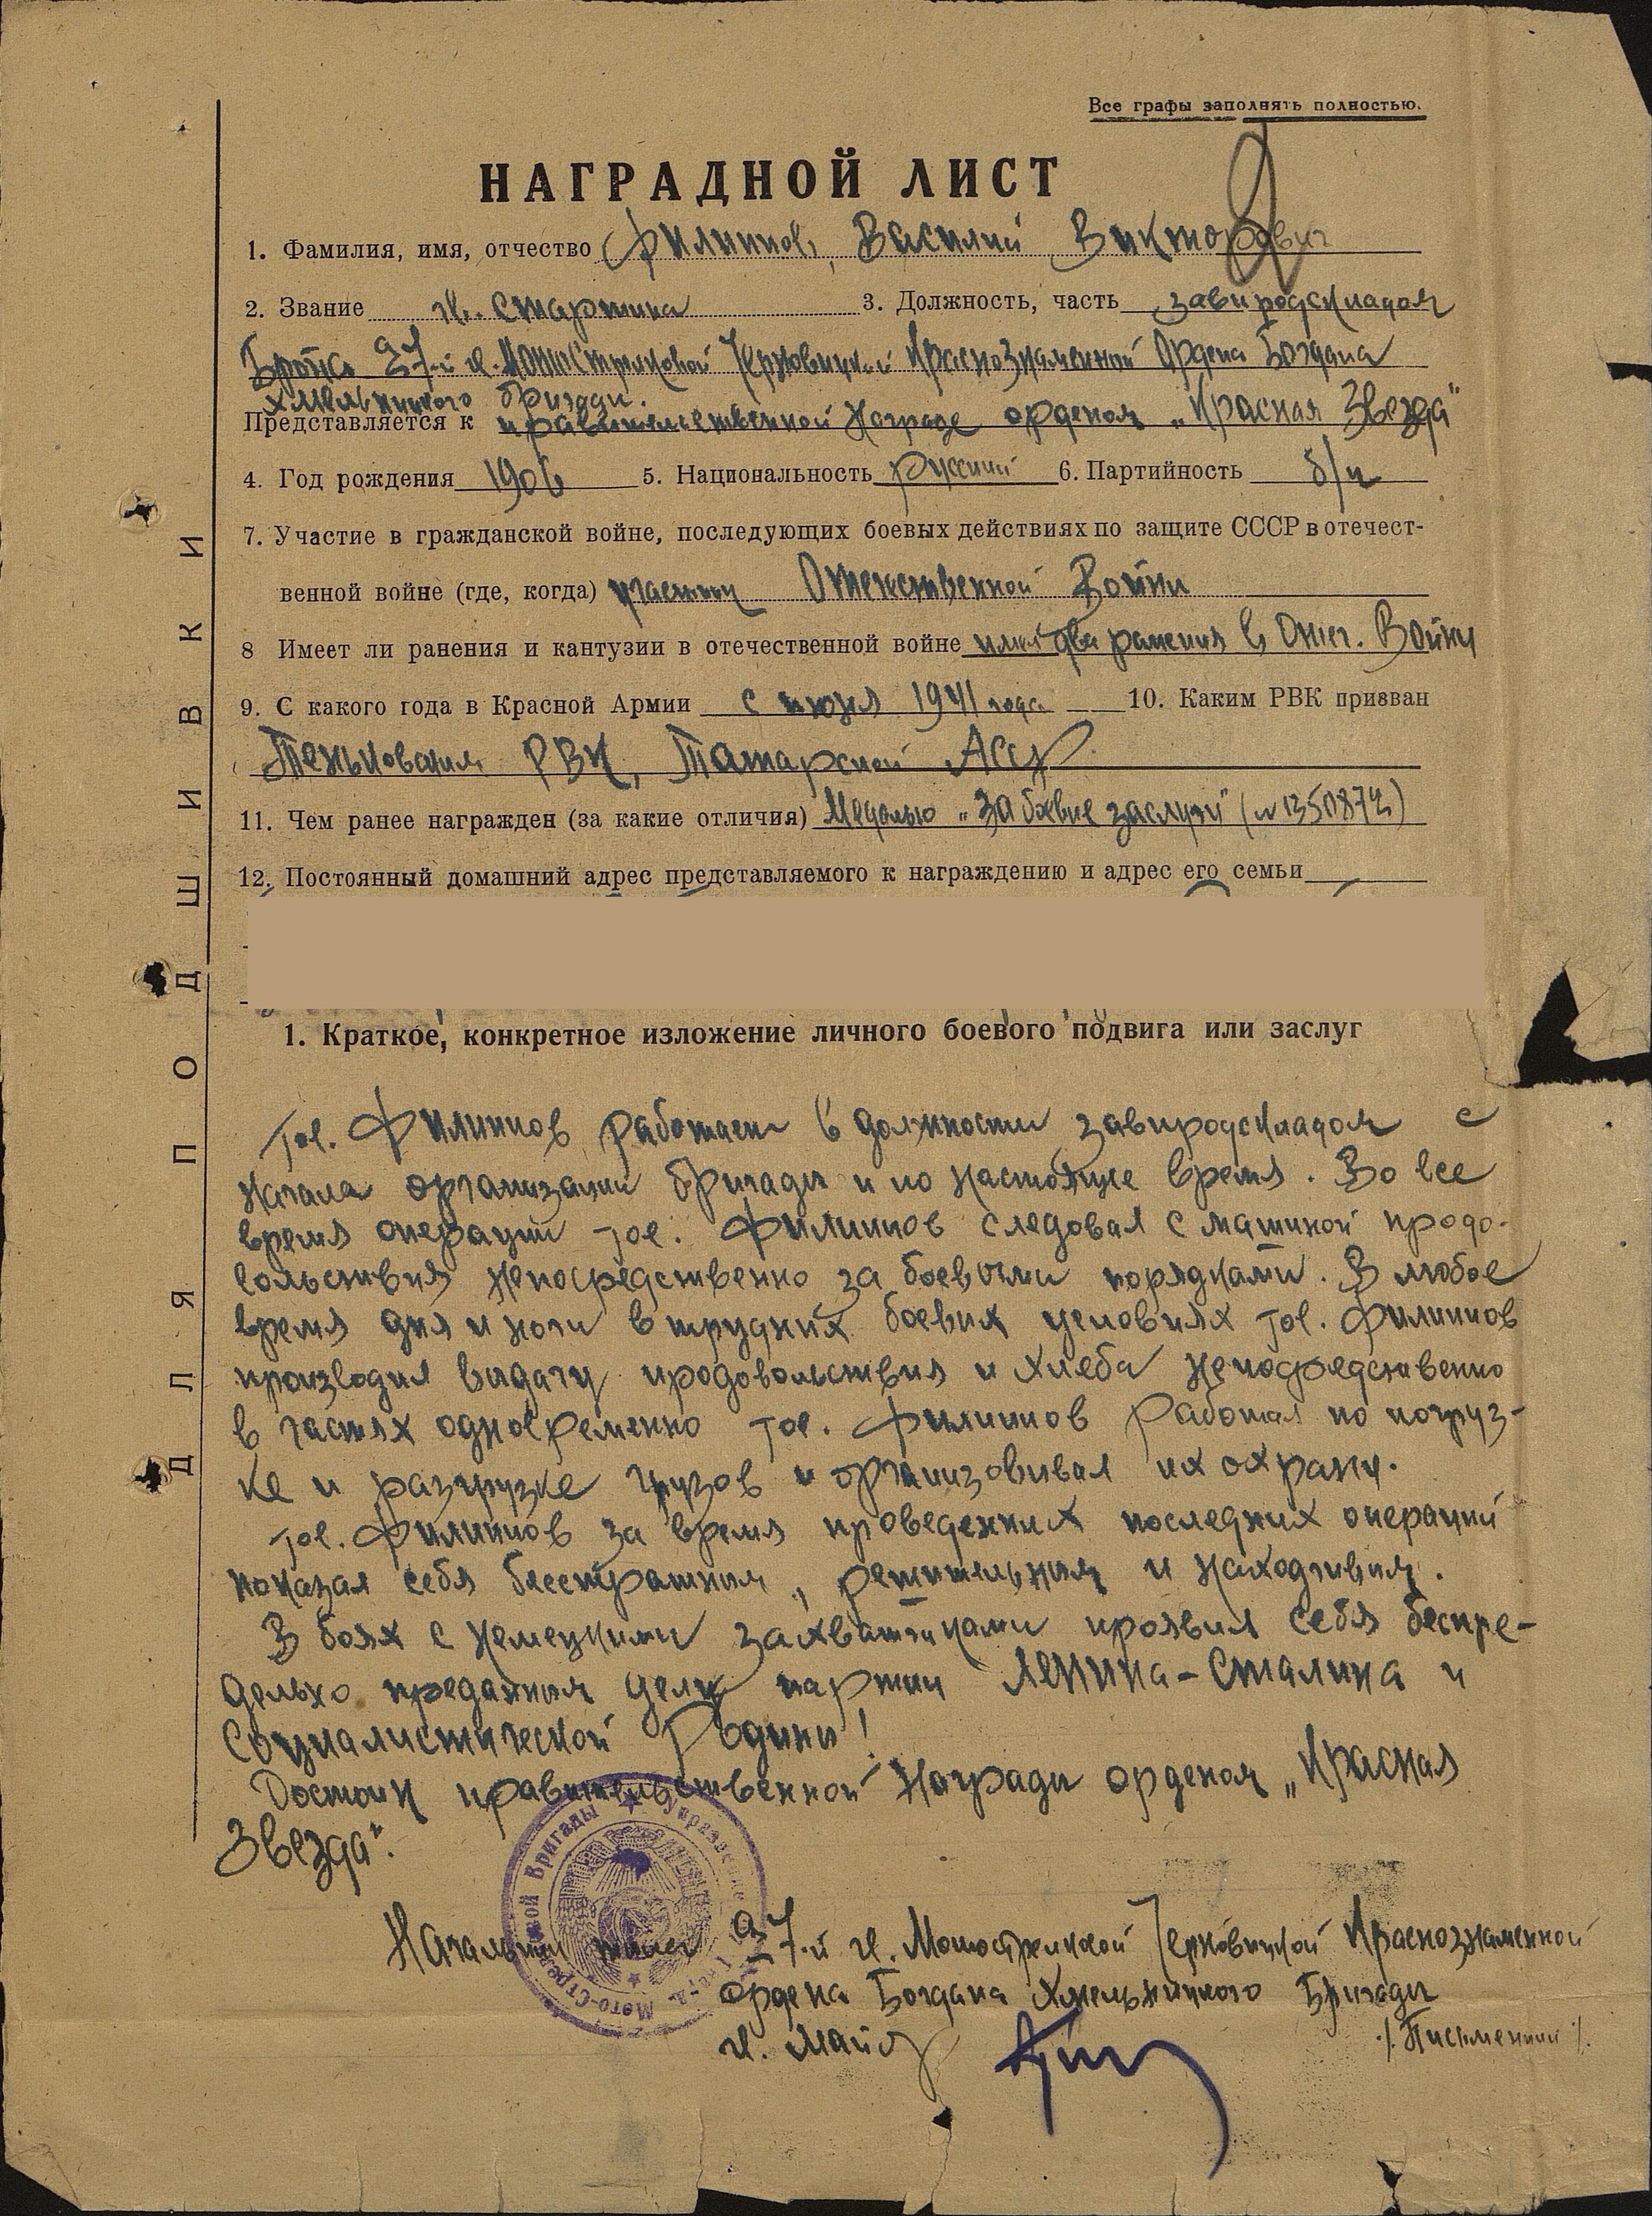 Все графы заполнять полностью.
НАГРАДНОЙ ЛИСТ
1. Фамилия, имя, отчество Филиппов, Василий Викторович
2. Звание гв. Старшина 3. Должность, часть завпродскладом
27-й гв. Мотострелковой Черновицкой Краснознаменной Ордена Богдана
Хмельницкого бригады.
Представляется к правительственной Награде орденом „Красная Звезда"
4. Год рождения 1906 5. Национальность русский 6. Партийность б/п
7. Участие в гражданской войне, последующих боевых действиях по защите СССР в отечест-
венной войне (где, когда) участник Отечественной Войны
8 Имеет ли ранения и кантузии в отечественной войне имел два ранения в Отеч. Войну
9. С какого года в Красной Армии с июля 1941 года 10. Каким РВК призван
Теньковским РВК, Татарской АССР
11. Чем ранее награжден (за какие отличия) Медалью „За боевые заслуги" (№1350872)
12. Постоянный домашний адрес представляемого к награждению и адрес его семьи
1. Краткое, конкретное изложение личного боевого подвига или заслуг
Тов. Филиппов работает в должности завпродскладом с
начала организации бригады и по настоящее время. Во все
время операции тов. Филиппов следовал с машиной продо-
вольствия непосредственно за боевыми порядками. В любое
время дня и ночи в трудных боевых условиях тов. Филиппов
производил выдачу продовольствия и хлеба непосредственно
в частях одновременно тов. Филиппов работал по погруз-
ке и разгрузке грузов и организовывал их охрану.
Тов. Филиппов за время проведенных последних операций
показал себя бесстрашным, решительным и находчивым.
В боях с немецкими захватчиками проявил себя беспре-
дельно преданным делу партии Ленина-Сталина и
Социалистической Родины!
Достоин правительственной Награды орденом „Красная
Звезда".
Начальник штаба 27-й гв. Мотострелковой Черновицкой Краснознаменной
Ордена Богдана Хмельницкого Бригады
гв. Майор /Письменный/.
Управление Мото-Стрелковой Бригады
ДЛЯ ПОДШИВКИ